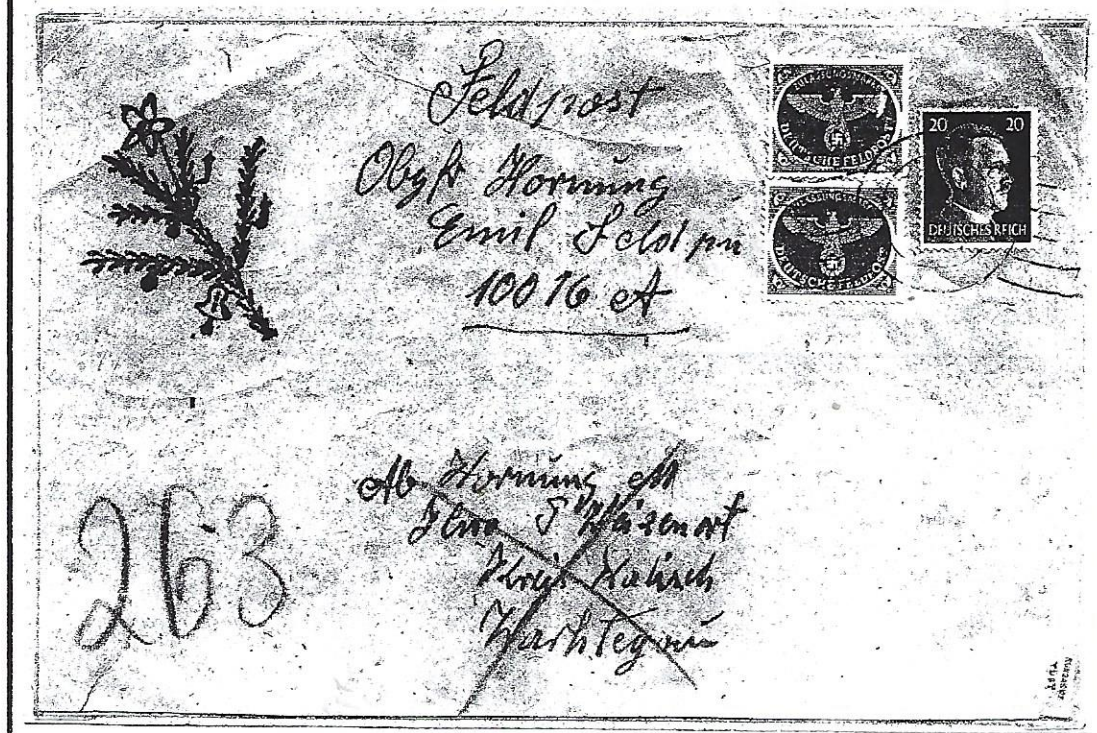 Feldpost
Obgfr Hornung
Emil Feldpn
10076 A
ZULASSUNGSMARKE
DEUTSCHE FELDPOST
DEUTSCHE FELDPOST
20 20
DEUTSCHES REICH
Ab Hornung M
Weizenort
Kreis Kalisch
Warthegau
263